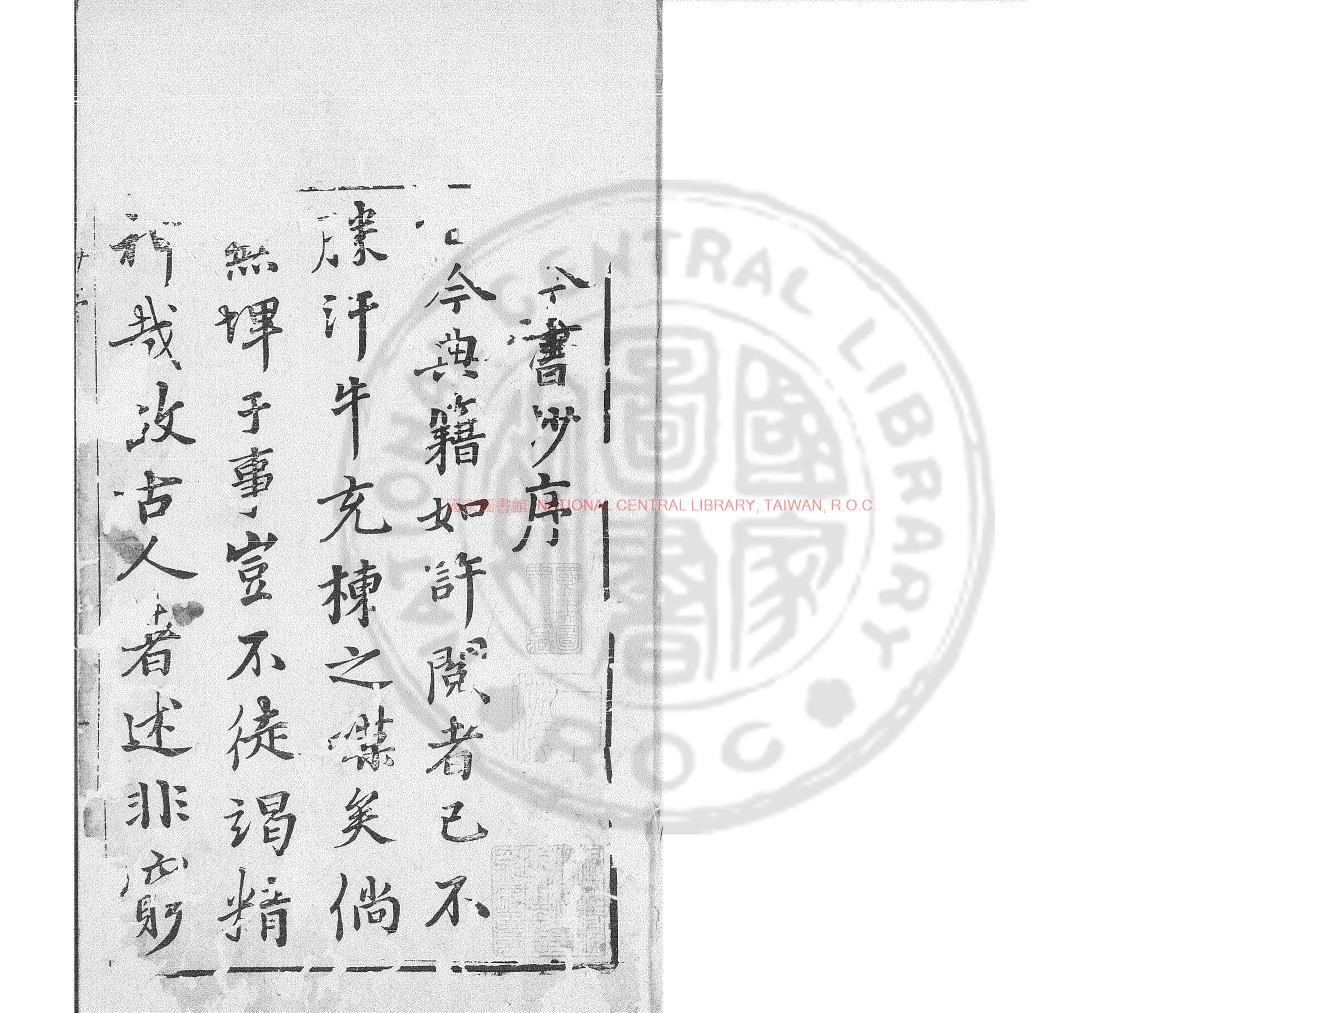 今書抄序
古今典籍如許閱者已不
勝汗牛充棟之嘆矣倘
無埤于事豈不徒竭精
神哉攷古人著述非窮
國家圖書館, NATIONAL CENTRAL LIBRARY, TAIWAN, R.O.C.
NATIONAL CENTRAL LIBRARY
ROC